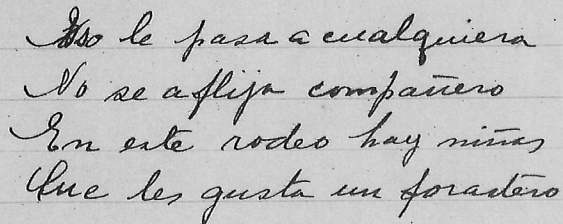 Eso le pasa a cualquiera
No se aflija compañero
En este rodeo hay niñas
Que les gusta un forastero